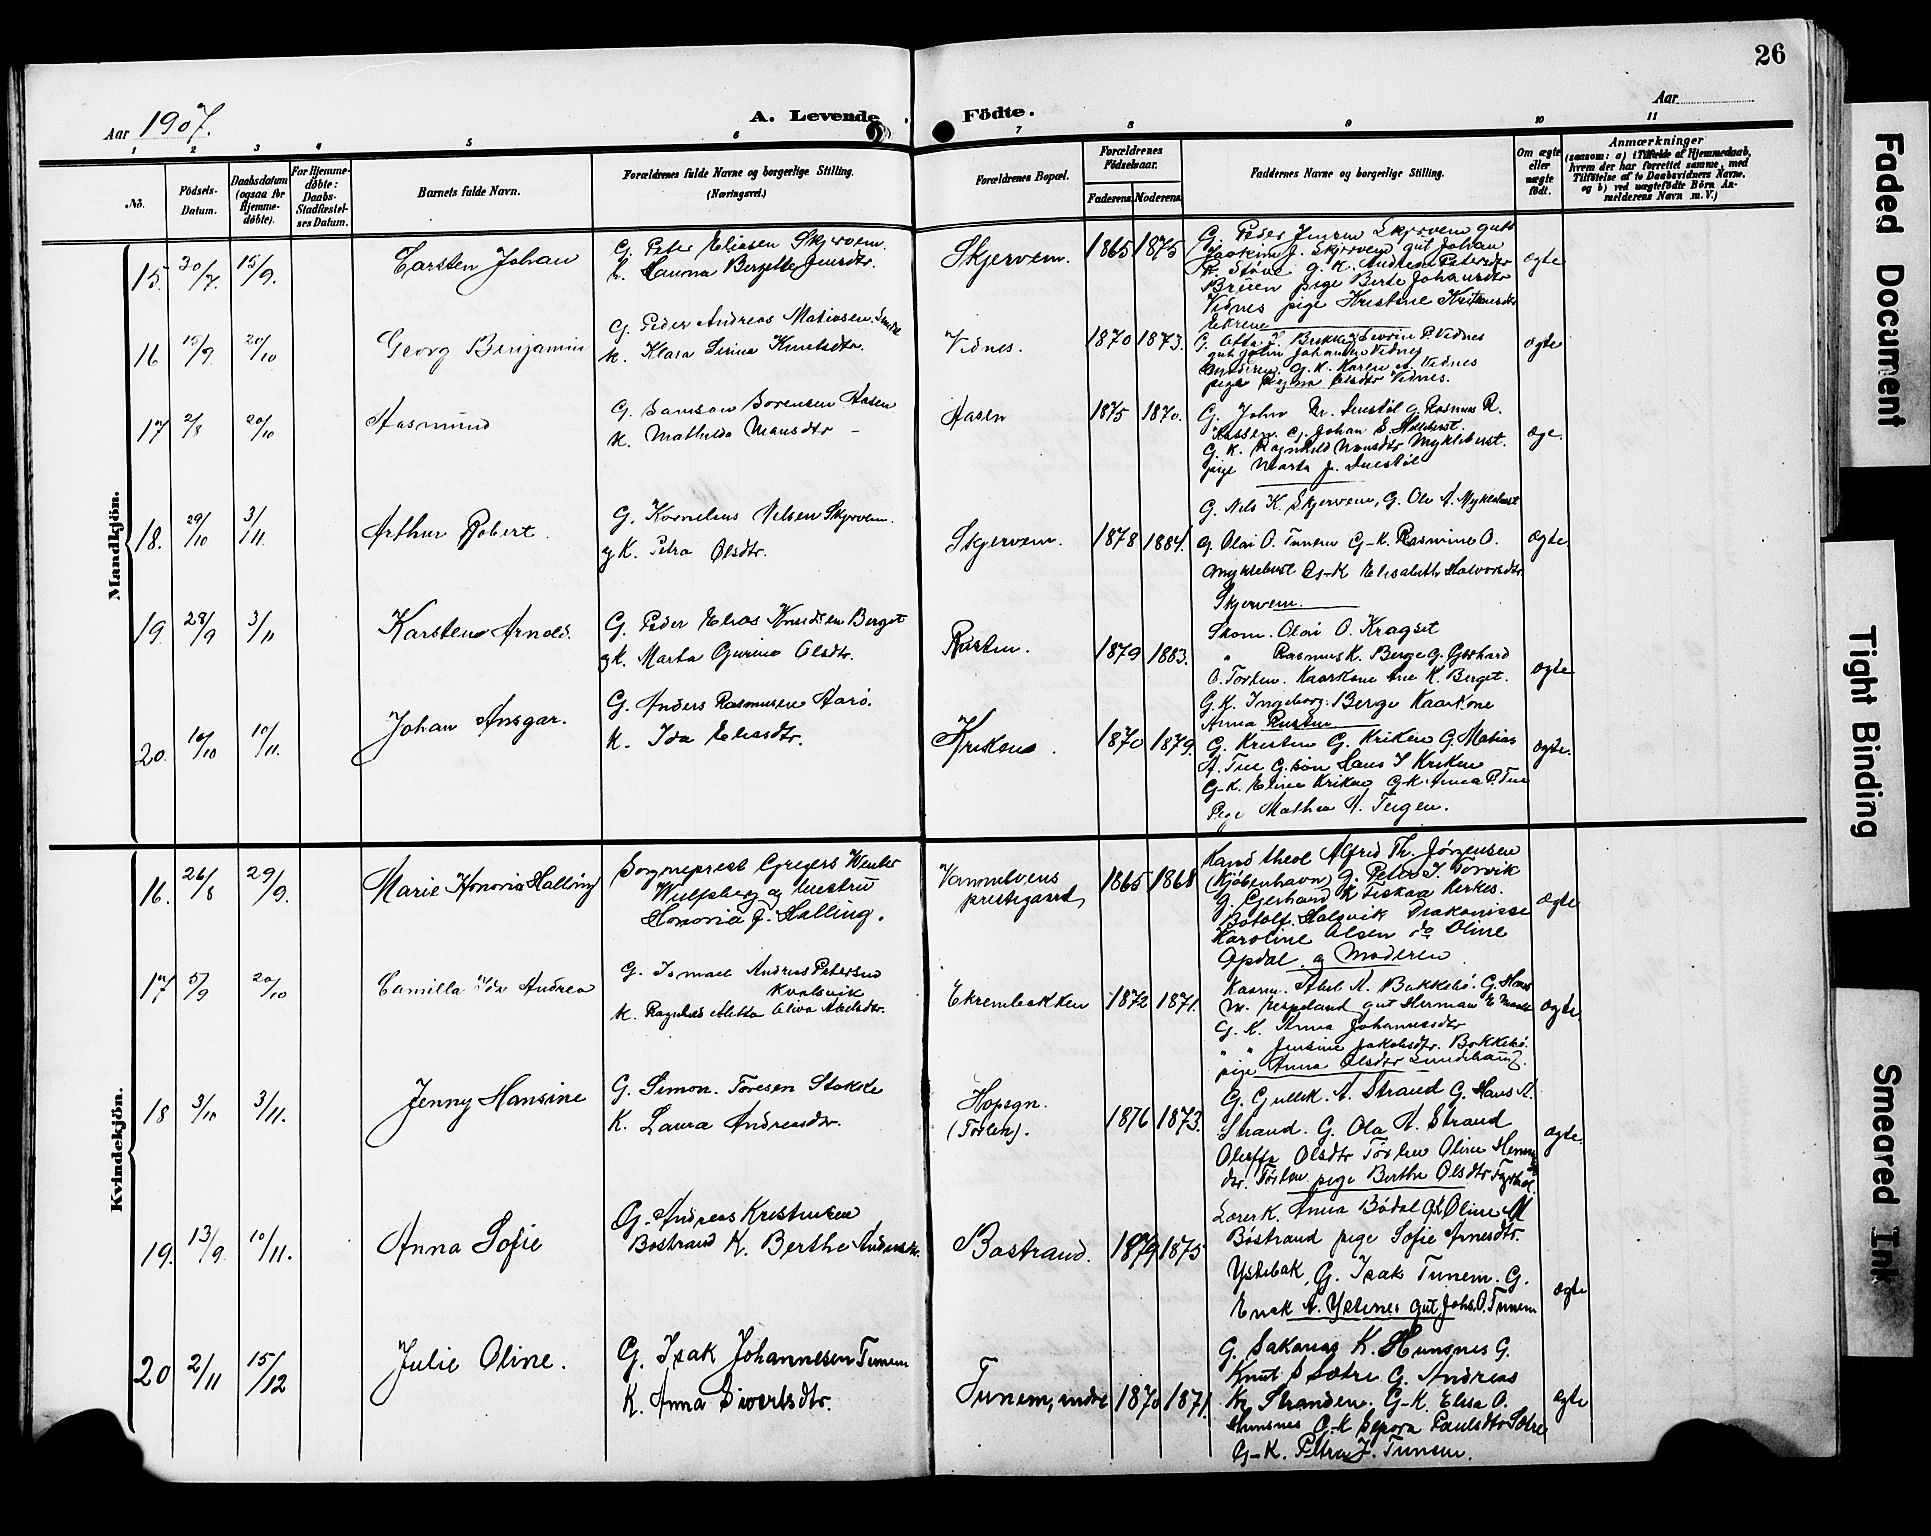 26
Aar 1907.
A. Levende Födte.
Aar
1 2 3 4 5 6 7 8 9 10 11
No.
Födsels-Datum.
Daabsdatum (ogsaa for Hjemme-döbte).
For Hjemme-döbte: Daabs-Stadfæstel-ses Datum.
Barnets fulde Navn.
Forældrenes fulde Navne og borgerlige Stilling.
(Næringsvei.)
Forældrenes Bopæl.
Forældrenes Födselsaar.
Faderens. Moderens.
Faddernes Navne og borgerlige Stilling.
Om ægte eller uægte födt.
Anmærkninger
(saasom: a) i Tilfælde af Hjemmedaab,
hvem der har forrettet samme, med
Tilföielse af to Daabsvidners Navne.
og b) ved uægtefödte Börn An-
melderens Navn m. V.)
Mandkjön.
15. 30/7. 15/9. Carsten Johan
G. Peter Eliasen Skjervem.
K. Hanna Bergette Jensdtr.
Skjervem. 1865 1875
G. Peder Jensen Skjervem gut
Joakim J. Skjervem gut Johan
R. Støve G. K. Andrea Petersdtr
Brüen pige Berte Johansdtr
Vidnes pige Kristine
Ekrene
ægte
16 15/9. 20/10 Georg Benjamin
G. Peder Andreas Matiasen
K. Klara Sirina Knutsdtr.
Vidnes. 1870 1873.
G. Severin P. Vidnes
gut John Johansen Vidnes
G. K. Karen Vidnes
pige Olsdtr Vidnes.
ægte
17 2/8 20/10 Aasmund
G. Samson Sorensen Aasen
K. Mathilda Mansdtr
Aasen 1875 1870.
G. John G. Rasmus R.
Aassen. G. Johan S
G. K. Ragnhild Mansdtr Myklebust.
pige Marta J.
ægte.
18. 29/10 3/11. Arthur Robert.
G. Kornelius Nilsen Skjervem.
gK. Petra Olsdtr.
Skjervem. 1878 1884.
G. Nils K. Skjervem, G. Ole A. Myklebust
G. Olai O. Tunem G-K. Rasmine O.
Myklebust G-K Elisabeth Halvorsdtr
Skjervem.
ægte
19. 28/9 3/11 Karsten Arnold.
G. Peder Elias Knudsen Berget
gK. Marta Gurine Olsdtr.
Rusten. 1879 1883.
Skom. Olai O. Kragset
" Rasmus K. Berge G. Gerhard
O. Torhen. Kaarkone Ane K. Berget.
G. K. Ingeborg Berge Kaarkone
Anna Rusten
ægte
20. 10/10 10/11. Johan Ansgar.
G. Anders Rasmussen Aarö.
K. Ida Eliasdtr.
Kriken. 1870 1879.
G. Kristen G. Kriken G. Matias
A. Tue G.søn Hans J Kriken
G-K. Eline Kriken G-K. Anna P. Tue
Pige Mathea A.
ægte.
Kvindekjön.
16. 26/8 29/9. Marie Honoria Halling
Sogneprest Gregers Winter
Wulfsberg og hustru
Honoria f. Halling.
Vannelvens
prestegaard 1865 1868
Kand theol Alfred Th. Jörgensen
(Kjøbenhavn) G. Peter J. Torvik
G. Gerhard K Fiskaa Kirkes.
Botolf Halsvik Diakonisse
Karoline Olsen do Oline
Opdal og Moderen
ægte
17 5/9 20/10 Camilla Ida Andrea
G. Ismael Andreas Petersen
Kvalsvik
K. Ragnhild Aletta Oliva Abelsdtr.
Ekrembakken 1872 1871.
Kaarm. Abel A. Bakkebö. G. Hans
M. gut Herman E.
G. K. Anna Johannesdtr
" " Jensine Jakobsdtr. Bakkebö.
pige Anna Olsdtr
ægte.
18 3/10 3/11. Jenny Hansine
G. Simon Toresen Stokke
K. Laura Andreasdtr.
Hopegn.
(Torlen). 1876 1873.
G. Gullik A. Strand G. Hans A.
Strand. G. Ola A. Strand
Oleffa Olsdtr Oline
dtr. pige Berthe Olsdtr
ægte.
19. 13/9. 10/11. Anna Sofie
G. Andreas Kristensen
Bøstrand K. Berthe Andersdtr.
Bøstrand. 1879 1875
Lærer K. Anna Bødal G.K Oline M
Bøstrand pige Sofie Arnesdtr.
Ystebak, G. Isak Tunem. G.
Enok A. Ystenes gut Johs. O. Tunem
ægte
20 2/11 15/12 Julie Oline.
G. Isak Johannesen Tunem
K. Anna Sivertsdtr.
Tunem, indre 1870 1871.
G. Sakarias K. Hunsnes G.
Knut S Sætre G. Andreas
Kr. Stranden. G-K. Elisa O.
Hunsnes G-K Sepora Paulsdtr Sætre
G-K. Petra J. Tunem.
ægte
Faded Document
Tight Binding
Smeared Ink